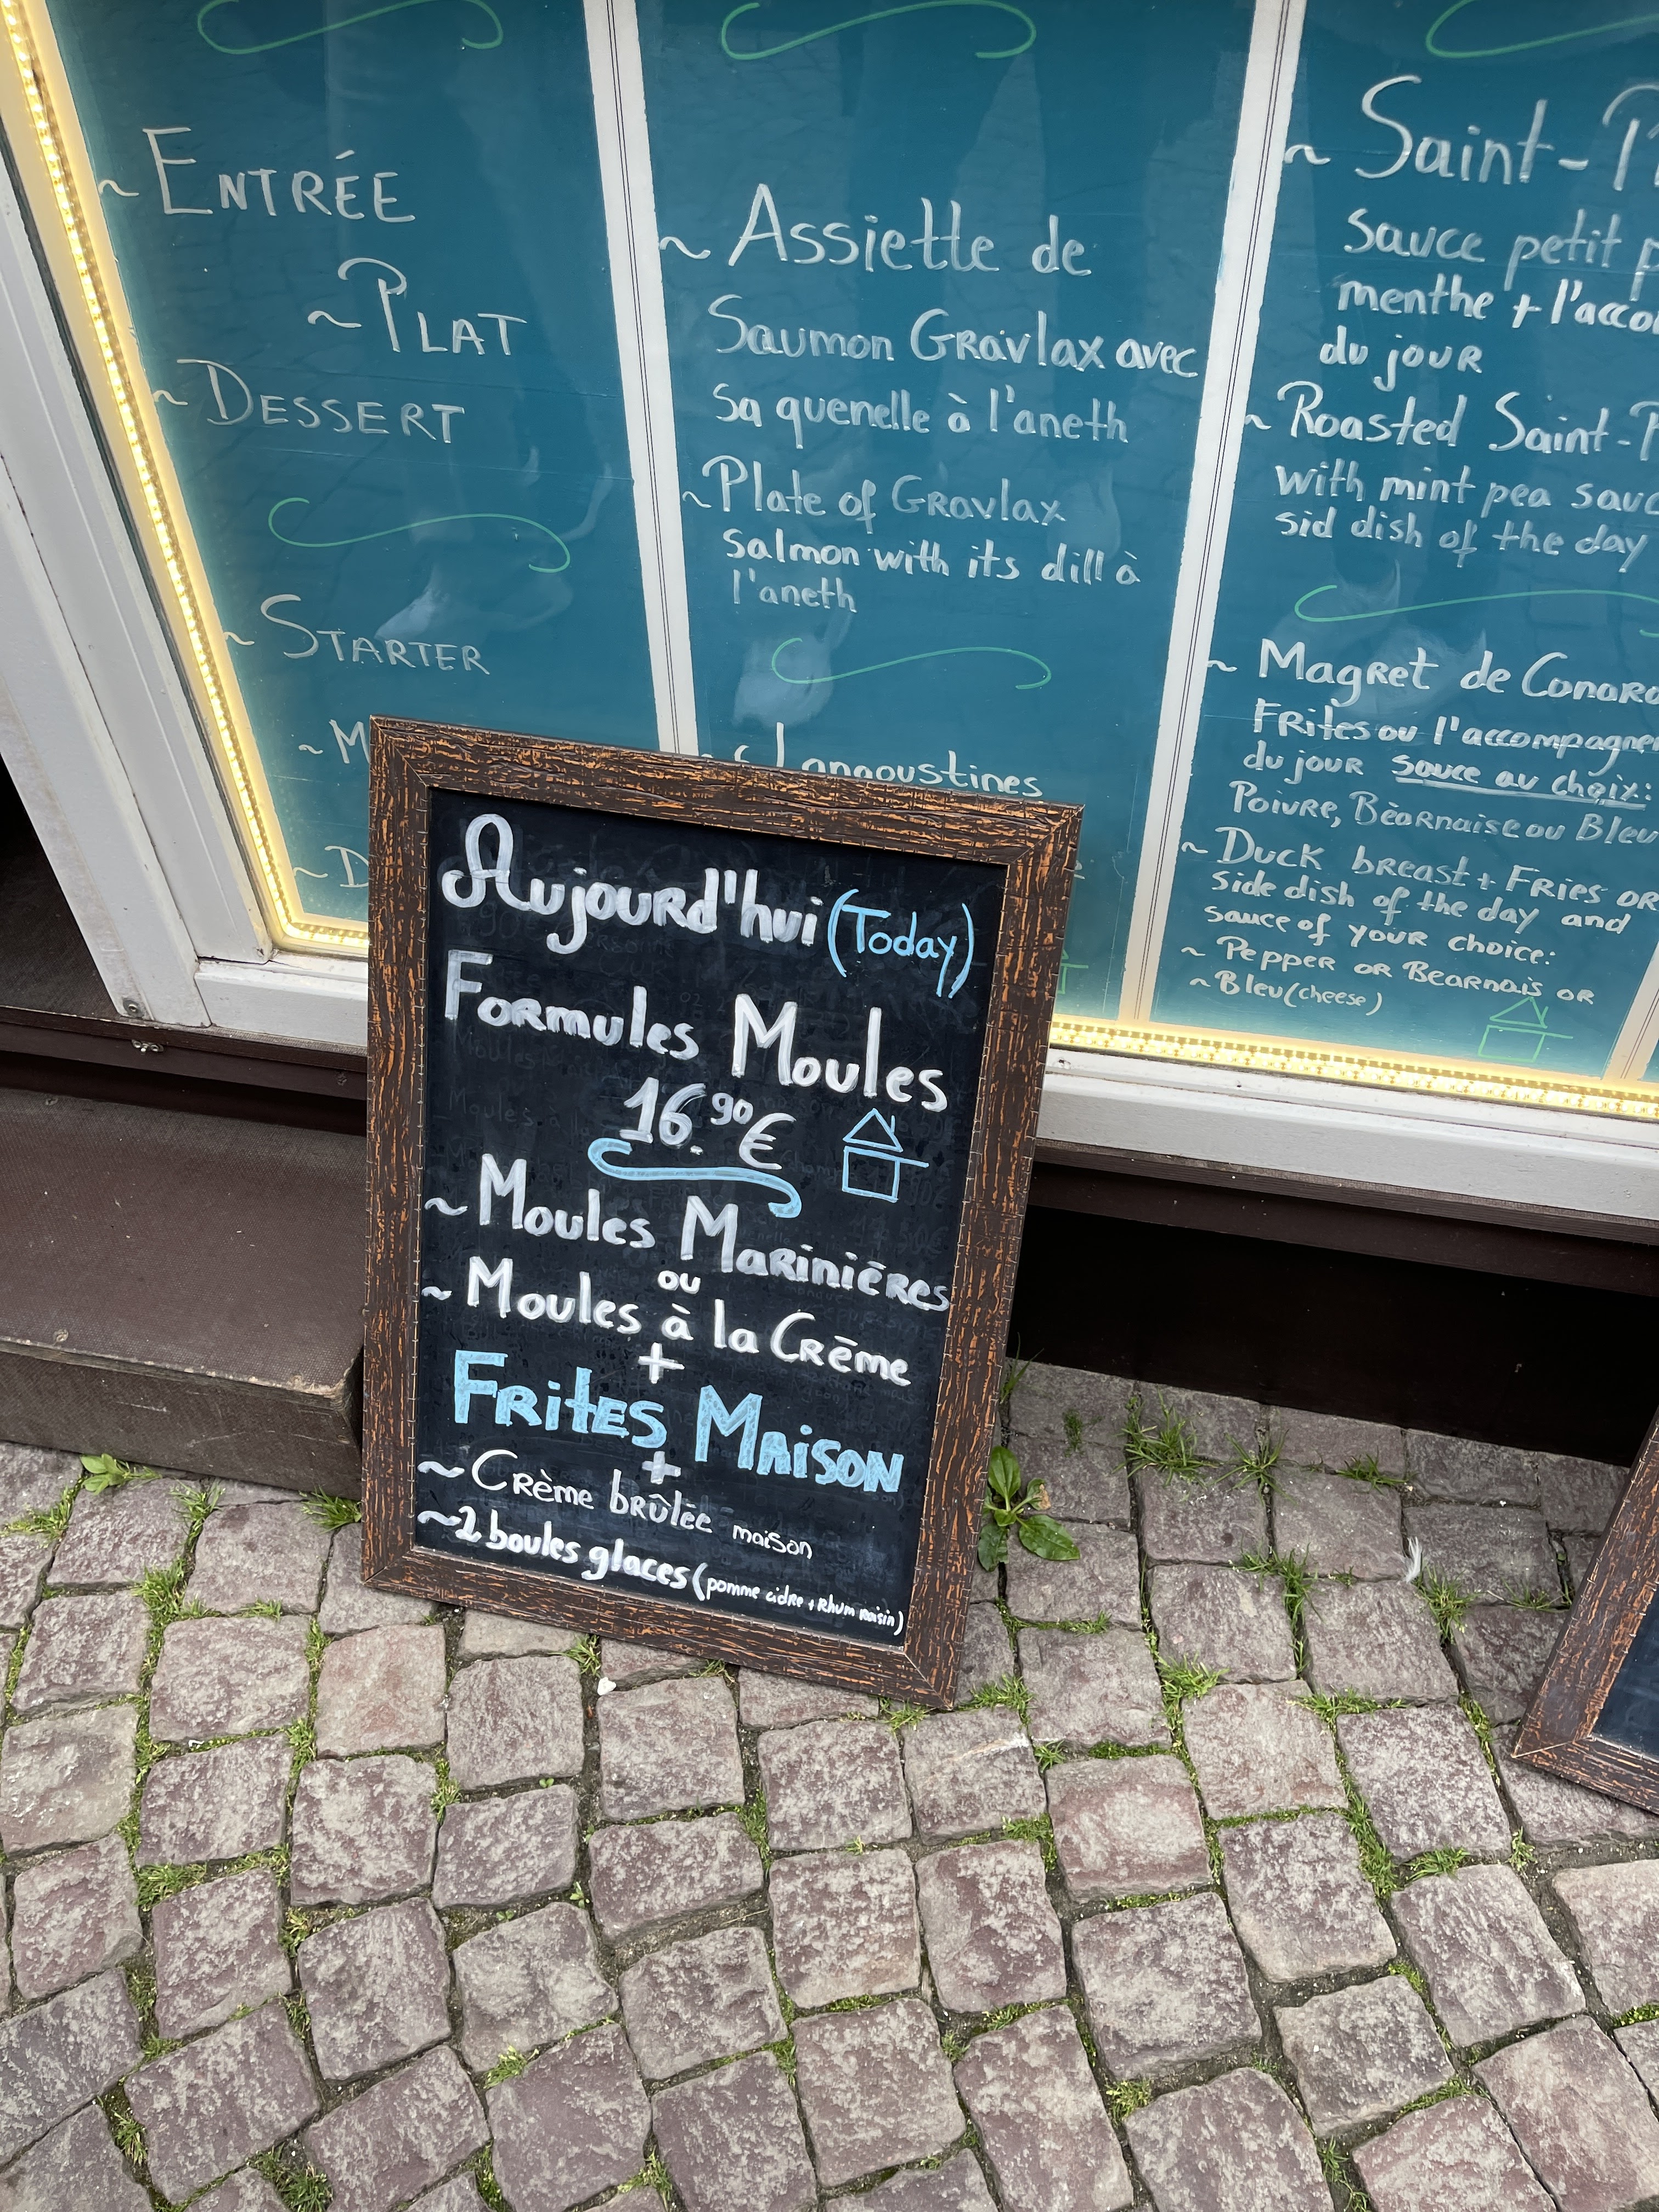 ~ ENTRÉE
~ PLAT
~ DESSERT
~ STARTER
~ Assiette de
Saumon Gravlax avec
Sa quenelle à l'aneth
~ Plate of Gravlax
salmon with its dill à
l'aneth
Langoustines
~ Saint-
Sauce petit
menthe + l'acco
du jour
~ Roasted Saint-
with mint pea sauc
sid dish of the day
~ Magret de Canar
Frites ou l'accompagne
du jour sauce au choix:
Poivre, Béarnaise ou Bleu
~ Duck breast + Fries or
side dish of the day and
sauce of your choice:
~ Pepper or Bearnais or
~ Bleu (cheese)
Aujourd'hui (Today)
Formules Moules
16.90€
~ Moules Marinières
ou
~ Moules à la Crème
+
Frites Maison
+
~ Crème brûlée maison
~ 2 boules glaces (pomme cidre + Rhum raisin)